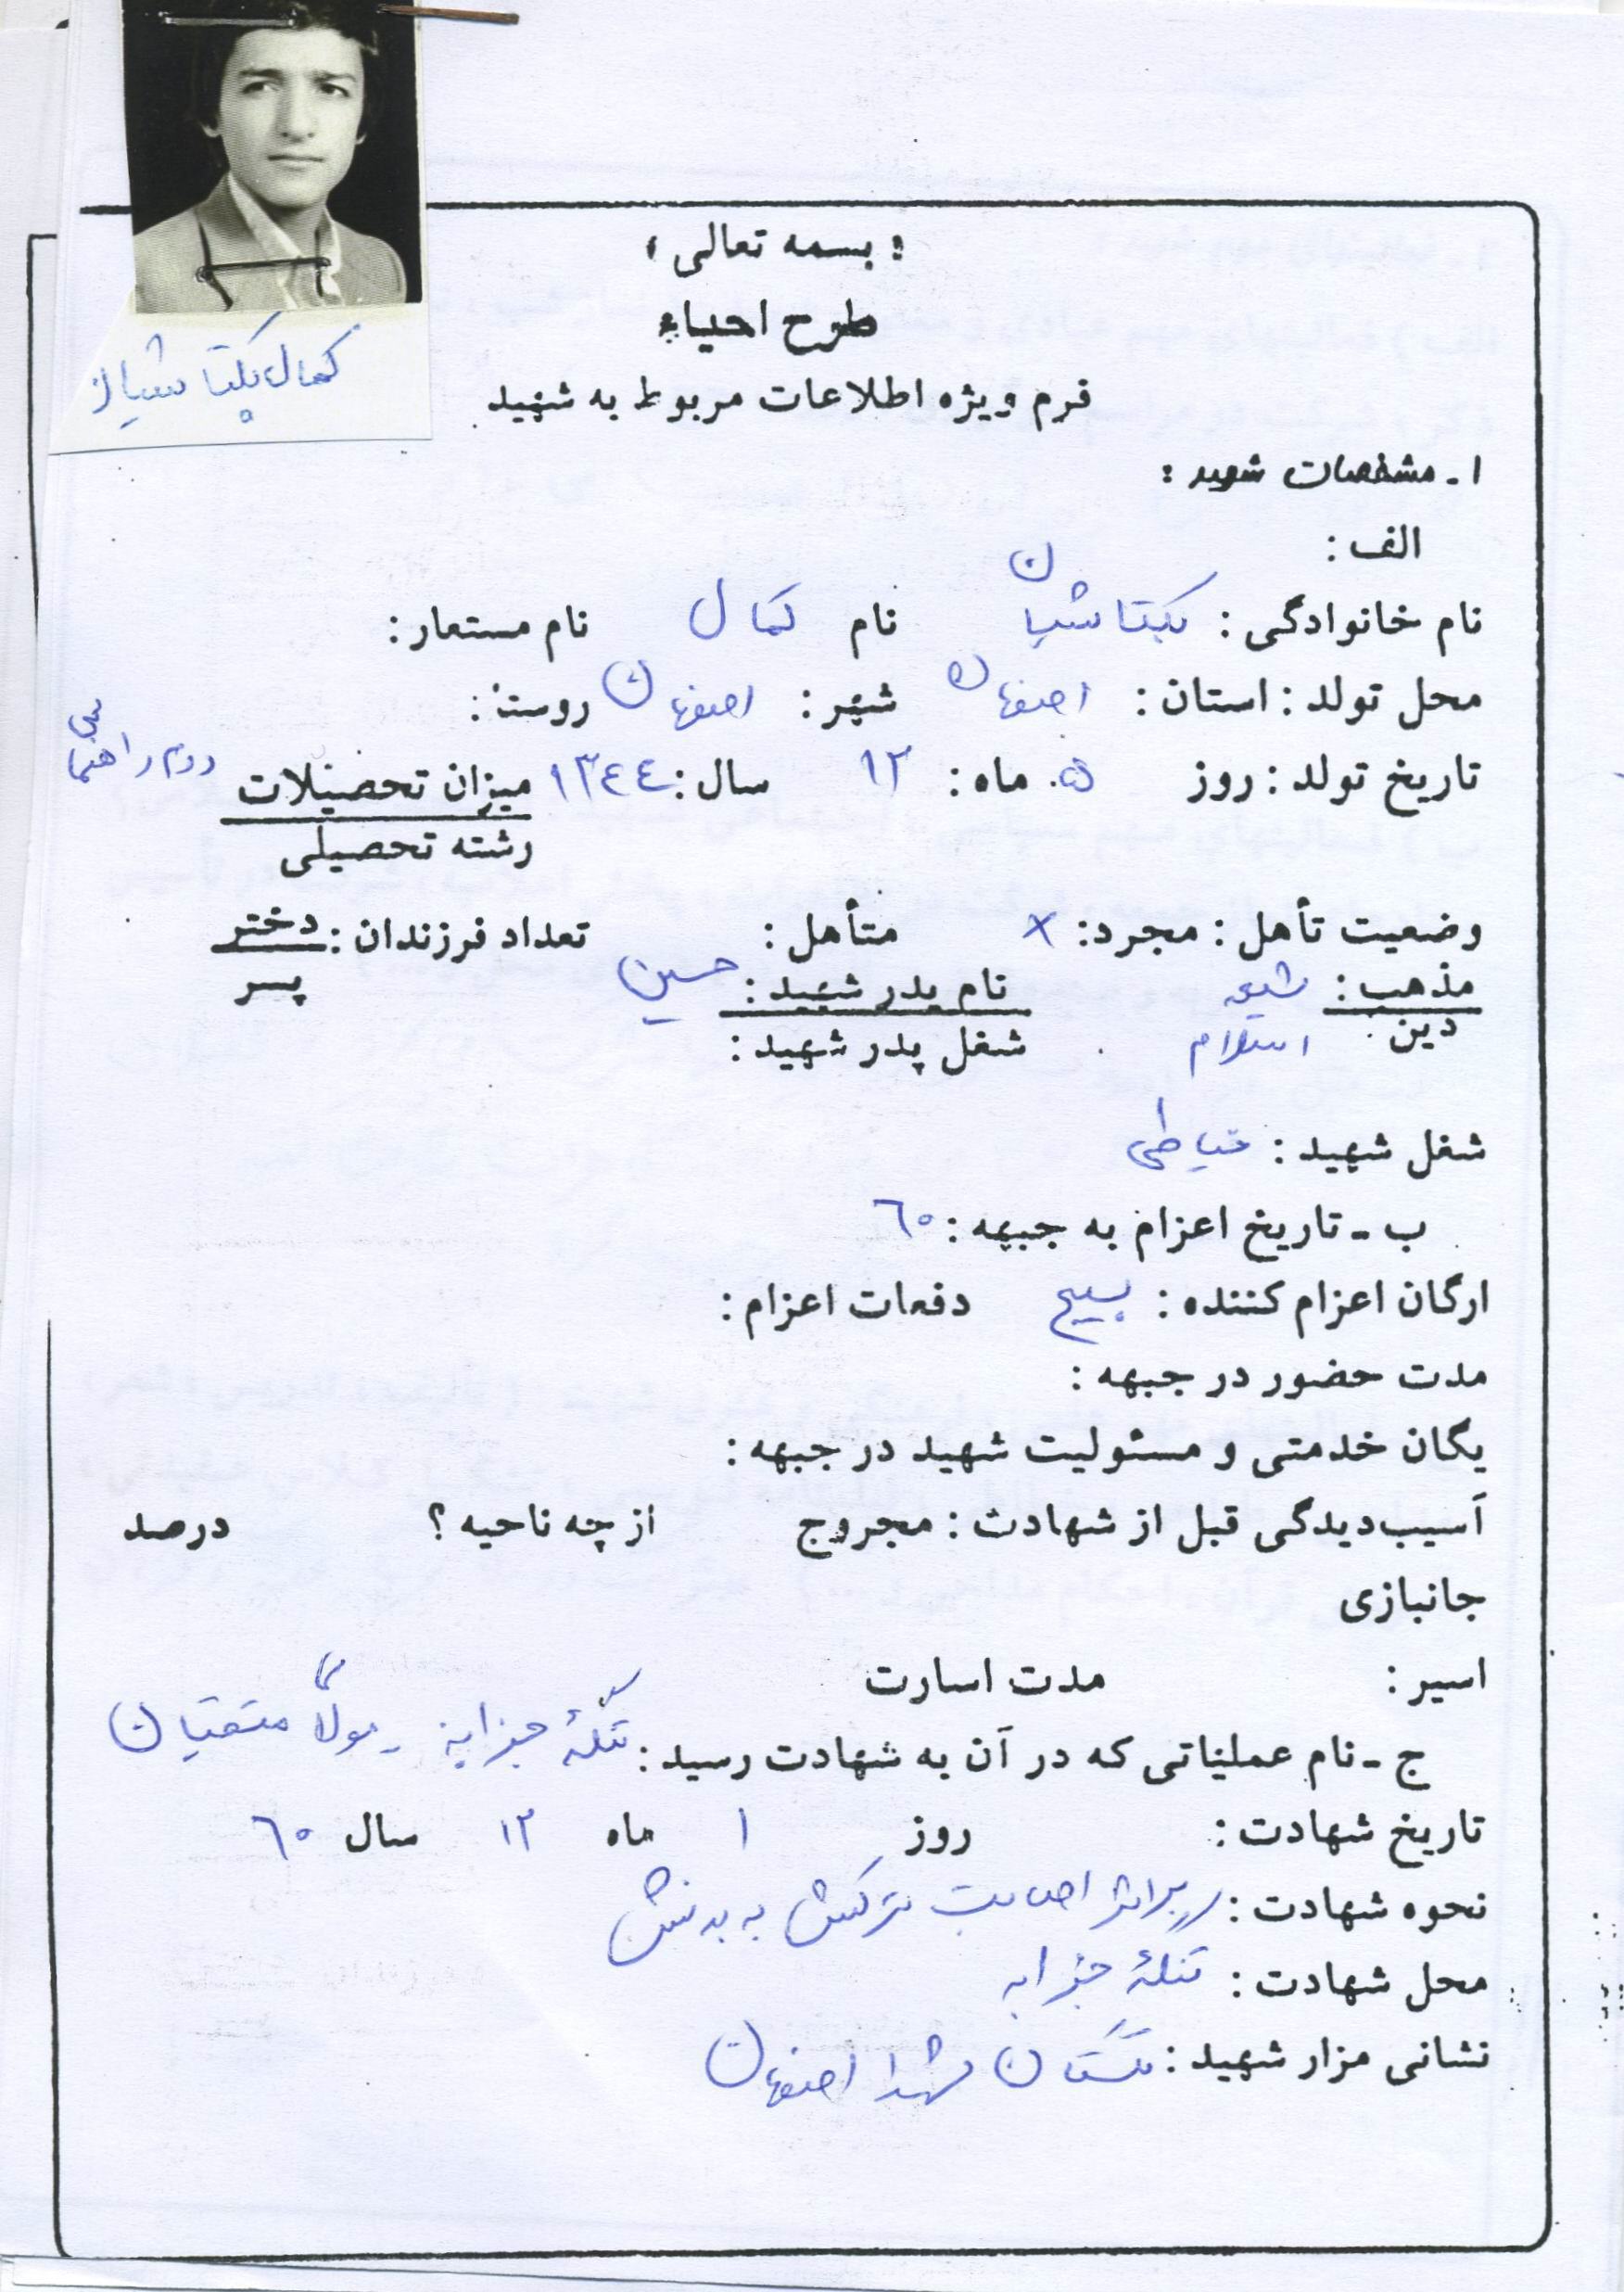 کمال بکتاشیان
: بسمه تعالی :
طرح احیاء
فرم ویژه اطلاعات مربوط به شهید
۱ - مشخصات شهید :
الف :
نام خانوادگی : بکتاشیان نام کمال نام مستعار :
محل تولد : استان : اصفهان شهر : اصفهان روستا :
تاریخ تولد : روز ۵ ماه : ۱۲ سال : ۱۳٤٤ میزان تحصیلات دوم راهنمایی
رشته تحصیلی
وضعیت تأهل : مجرد : × متأهل : تعداد فرزندان : دختر
پسر
مذهب : شیعه نام پدر شهید : حسین
دین : اسلام شغل پدر شهید :
شغل شهید : خیاطی
ب - تاریخ اعزام به جبهه : ٦۰
ارگان اعزام کننده : بسیج دفعات اعزام :
مدت حضور در جبهه :
یگان خدمتی و مسئولیت شهید در جبهه :
آسیب‌دیدگی قبل از شهادت : مجروح از چه ناحیه ؟ درصد
جانبازی
اسیر : مدت اسارت
ج - نام عملیاتی که در آن به شهادت رسید : تنگهٔ چزابه - مولای متقیان
تاریخ شهادت : روز ۱ ماه ۱۲ سال ٦۰
نحوه شهادت : براثر اصابت ترکش به بدنش
محل شهادت : تنگهٔ چزابه
نشانی مزار شهید : گلستان شهدا اصفهان